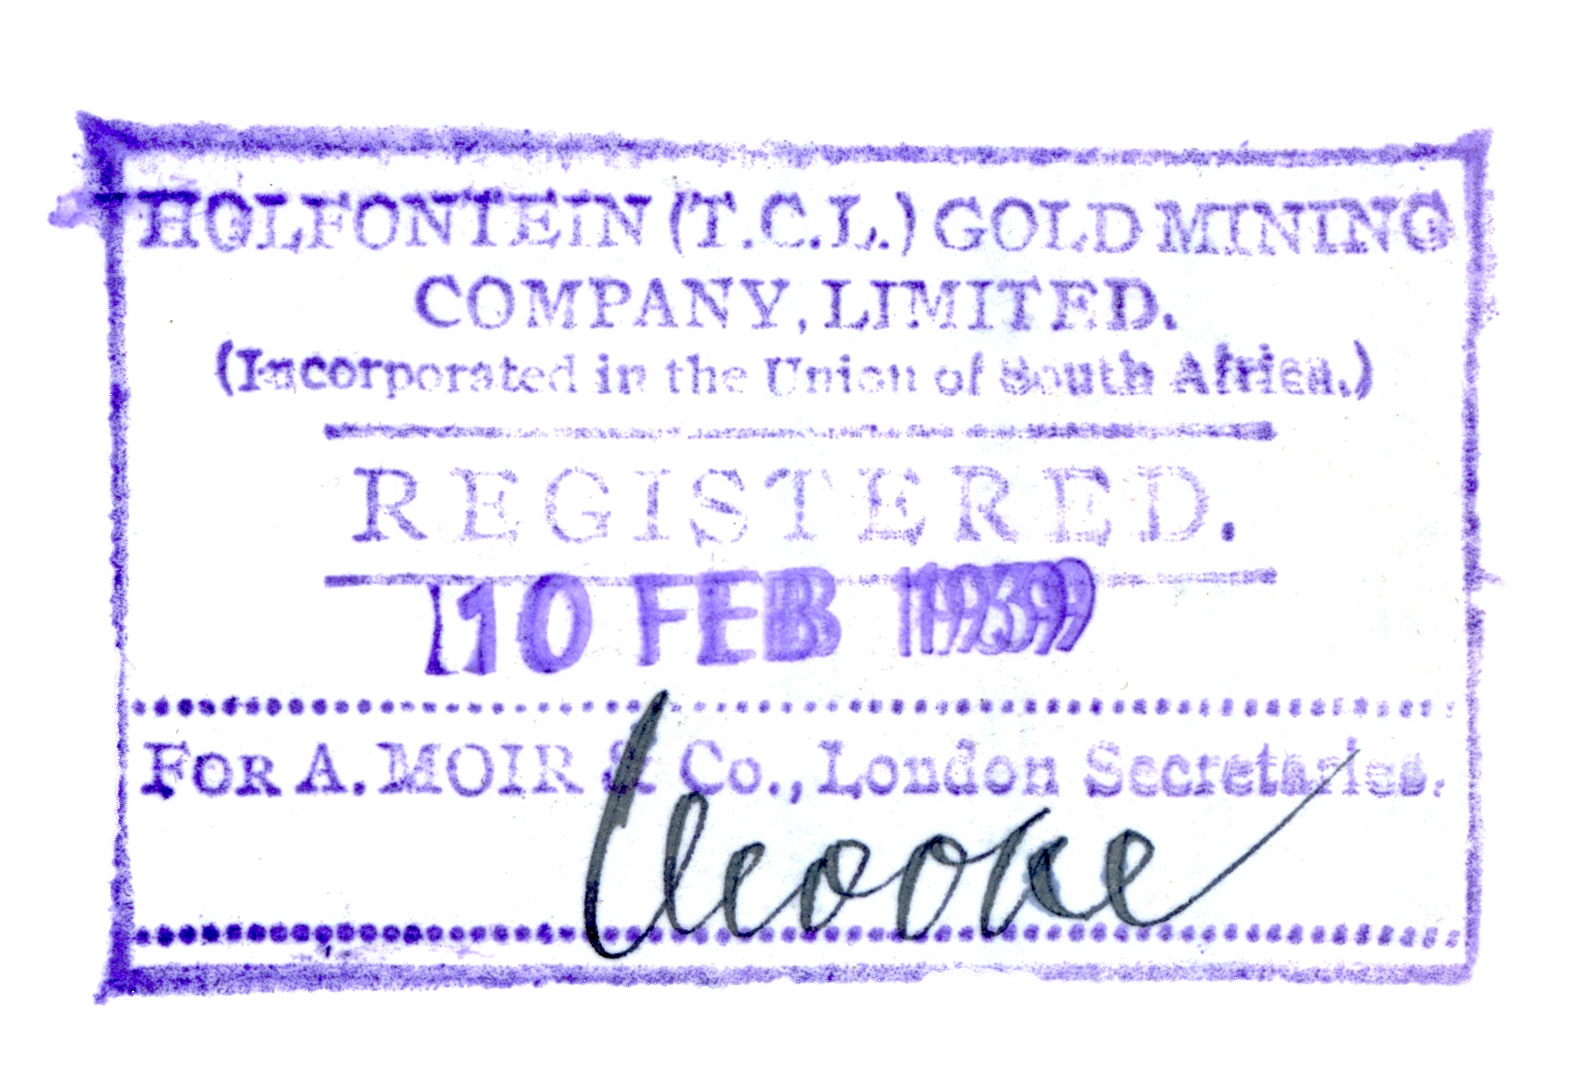 HOLFONTEIN (T.C.L.) GOLD MINING
COMPANY, LIMITED.
(Incorporated in the Union of South Africa.)
REGISTERED.
10 FEB 1939
FOR A. MOIR & Co., London Secretaries.